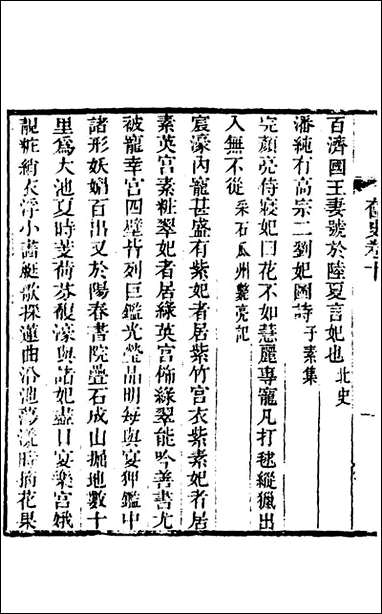 奩史卷十
百濟國王妻號於陸夏言妃也 北史
潘純有高宗二劉妃圖詩 子素集
完顏亮侍寢妃曰花不如慧麗專寵凡打毬縱獵出
入無不從 采石瓜州斃亮記
宸濠內寵甚盛有紫妃者居紫竹宮衣紫素妃者居
素英宮素粧翠妃者居綠英宮飾綠翠能吟善書尤
被寵幸宮四壁皆列巨鑑光瑩晶明每與宴狎鑑中
諸形妖媚百出又於陽春書院疊石成山掘地數十
里爲大池夏時芰荷芬馥濠與諸妃盡日宴樂宮娥
靚粧綃衣浮小艇歌採蓮曲沿池蕩流時摘花果